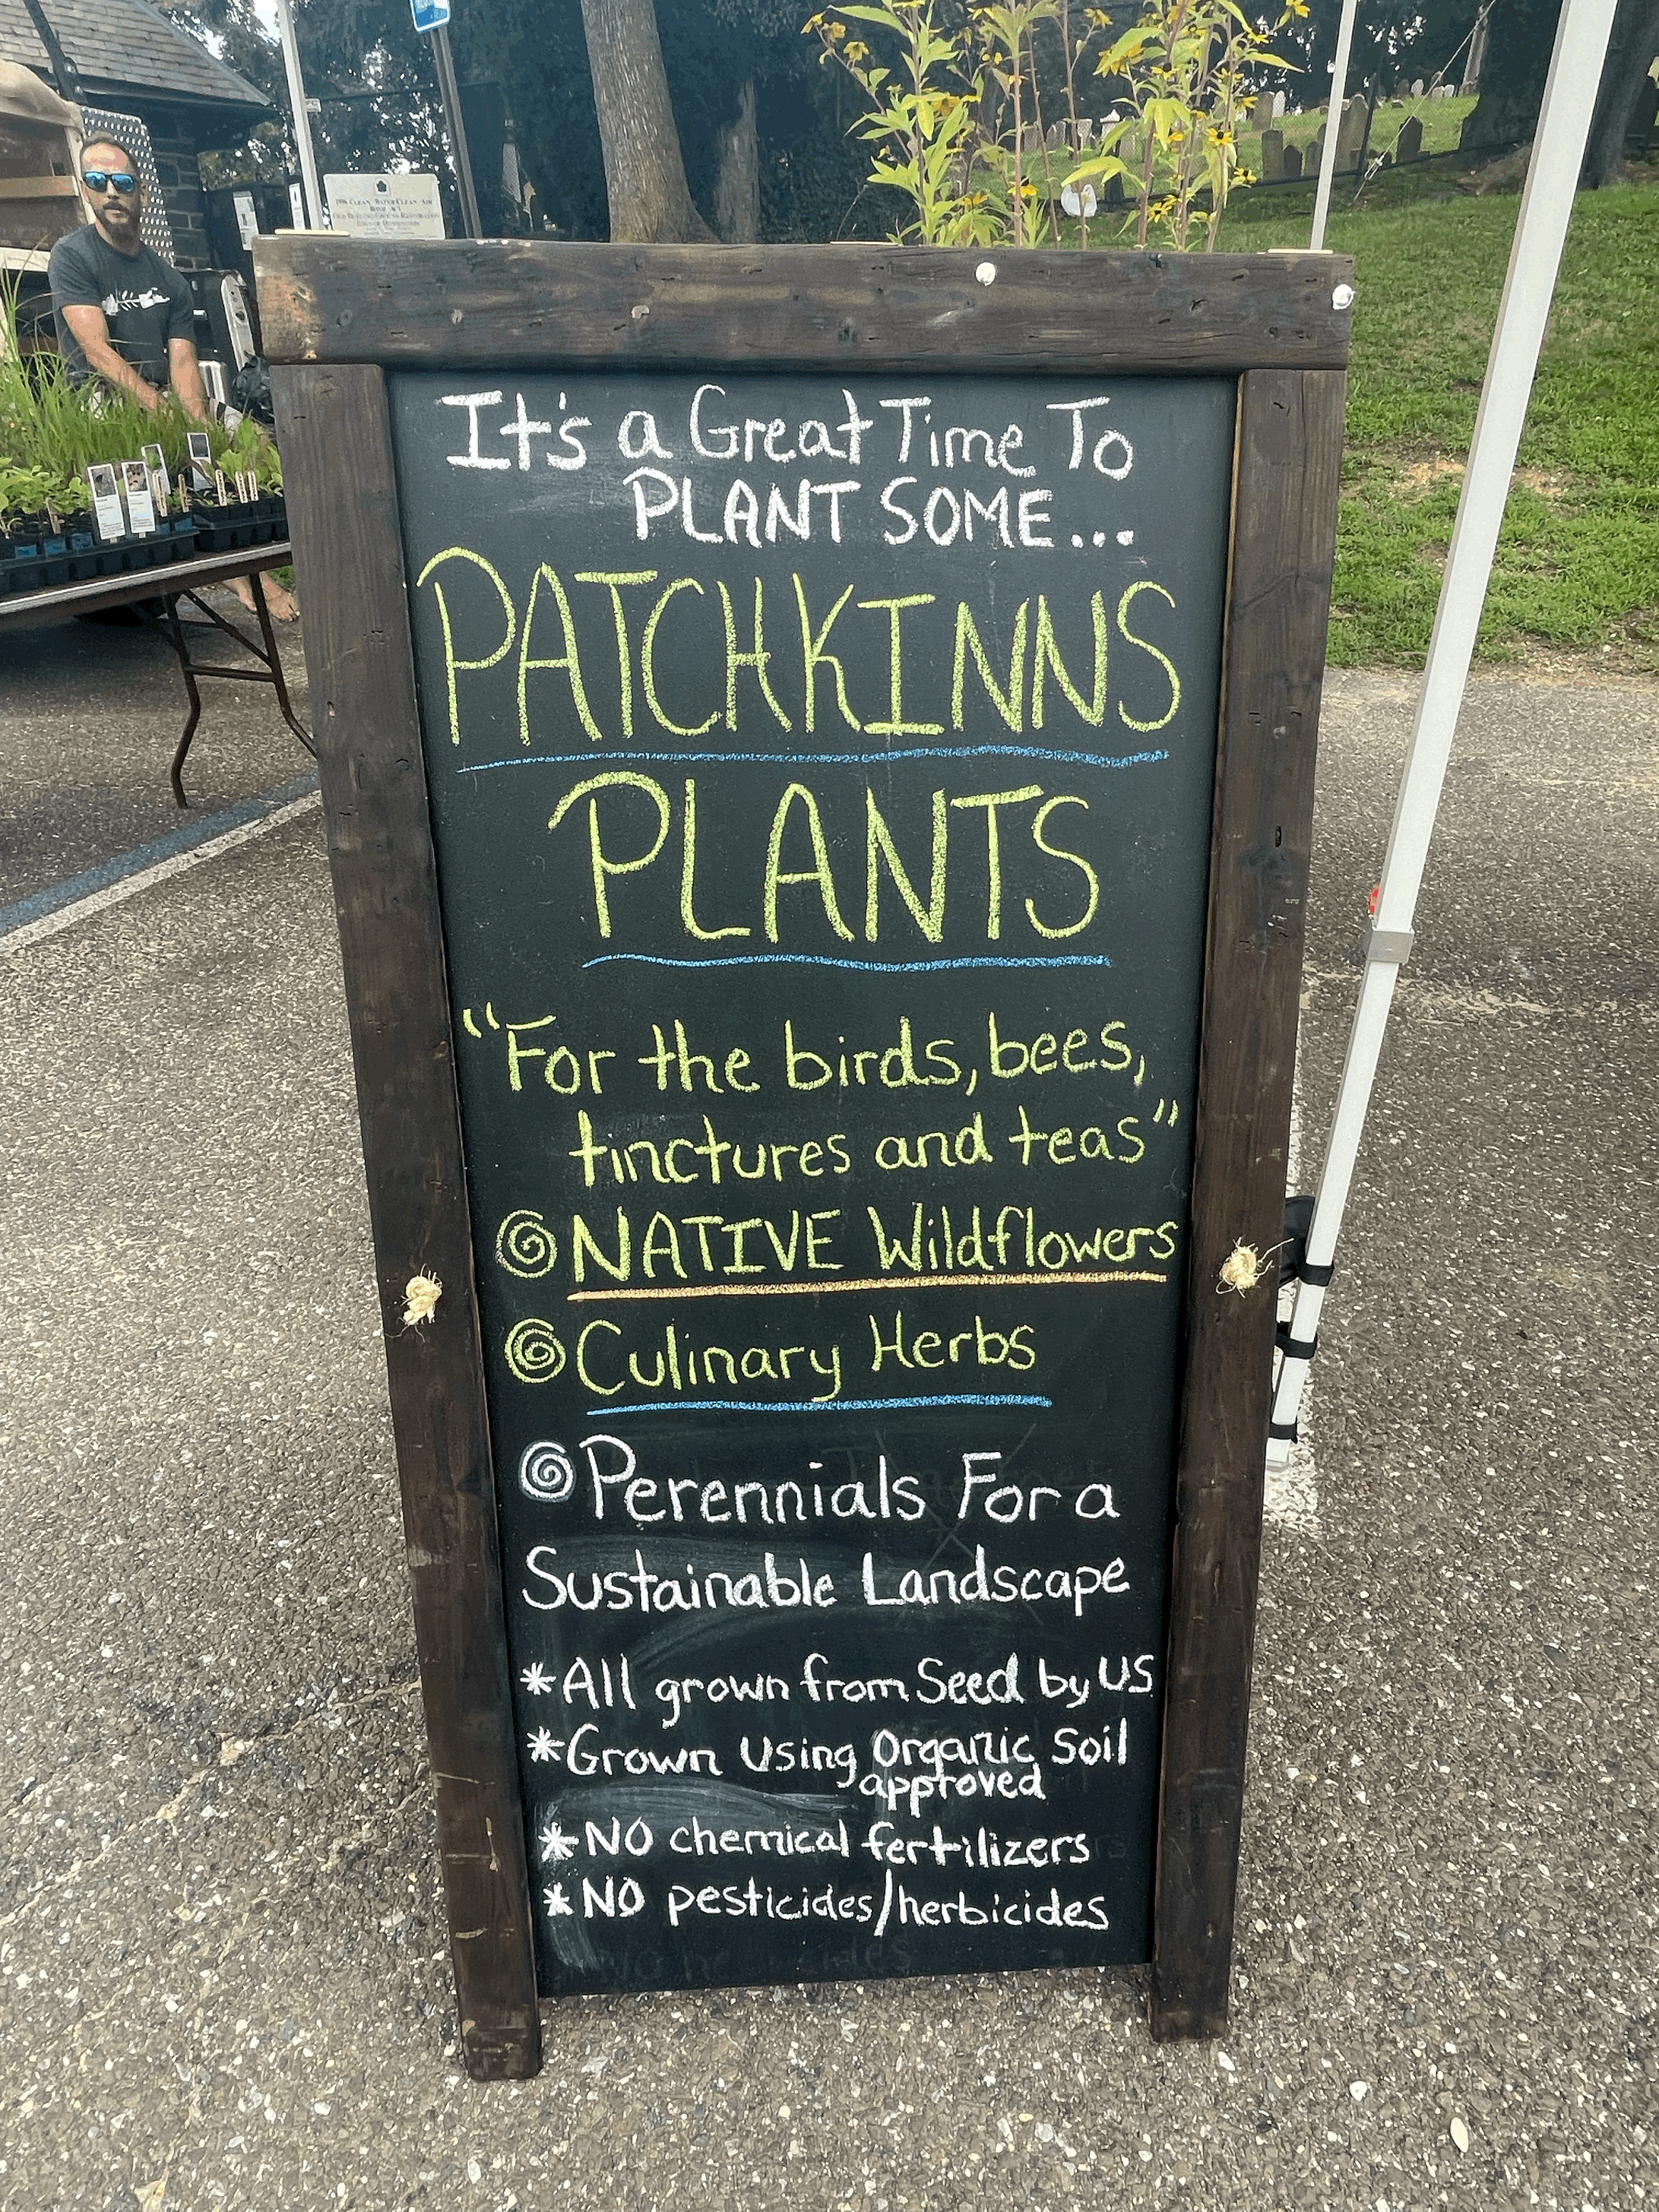 It's a Great Time To
PLANT SOME...
PATCHKINNS
PLANTS
"For the birds, bees,
tinctures and teas"
NATIVE Wildflowers
Culinary Herbs
Perennials For a
Sustainable Landscape
*All grown from Seed by US
*Grown Using Organic Soil
approved
*NO chemical fertilizers
*NO pesticides/herbicides
1996 CLEAN WATER/CLEAN AIR
BOND ACT
OLD BURYING GROUND RESTORATION